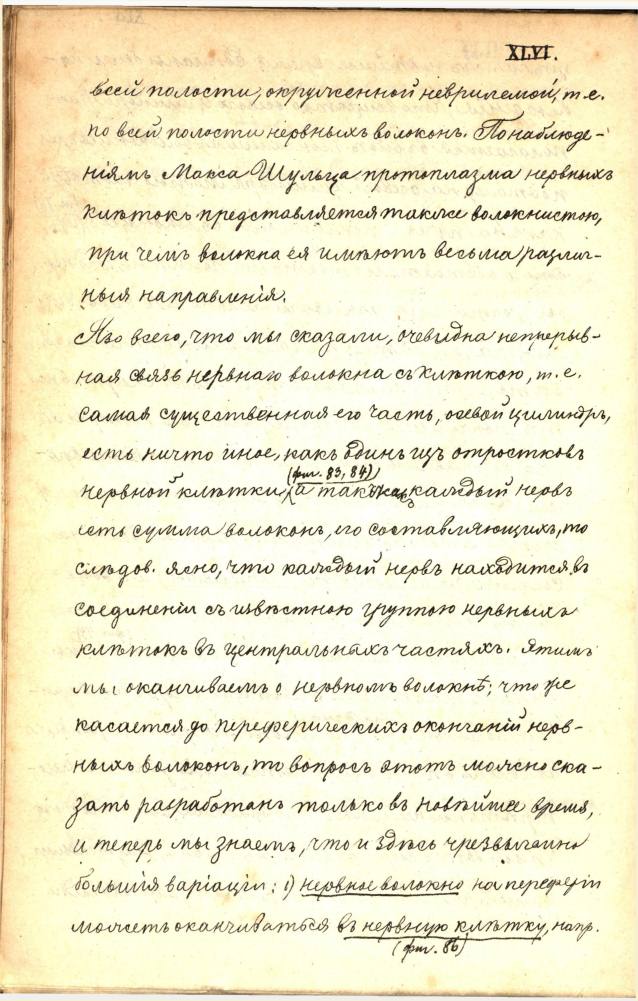 XLVI.
всей полости, окруженной неврилемой, т.е.
по всей полости нервныхъ волоконъ. По наблюде-
нiямъ Макса Шульца протоплазма нервныхъ
клѣтокъ представляется также волокнистою,
при чемъ волокна ея имѣютъ весьма различ-
ныя направленiя.
Изо всего, что мы сказали, очевидна непрерыв-
ная связь нервнаго волокна съ клѣткою, т.е.
самая существенная его часть, осевой цилиндръ,
есть ничто иное, какъ одинъ изъ отростковъ
(фиг. 83, 84)
нервной клѣтки, а такъ какъ каждый нервъ
есть сумма волоконъ, его составляющихъ, то
слѣдов. ясно, что каждый нервъ находится въ
соединенiи съ извѣстною группою нервныхъ
клѣтокъ въ центральныхъ частяхъ. Этимъ
мы оканчиваемъ о нервномъ волокнѣ; что же
касается до переферическихъ окончанiй нерв-
ныхъ волоконъ, то вопросъ этотъ можно ска-
зать разработанъ только въ новѣйшее время,
и теперь мы знаемъ, что и здѣсь чрезвычайно
большiя варiацiи: 1) нервное волокно на переферiи
можетъ оканчиваться въ нервную клѣтку, напр.
(фиг. 86)